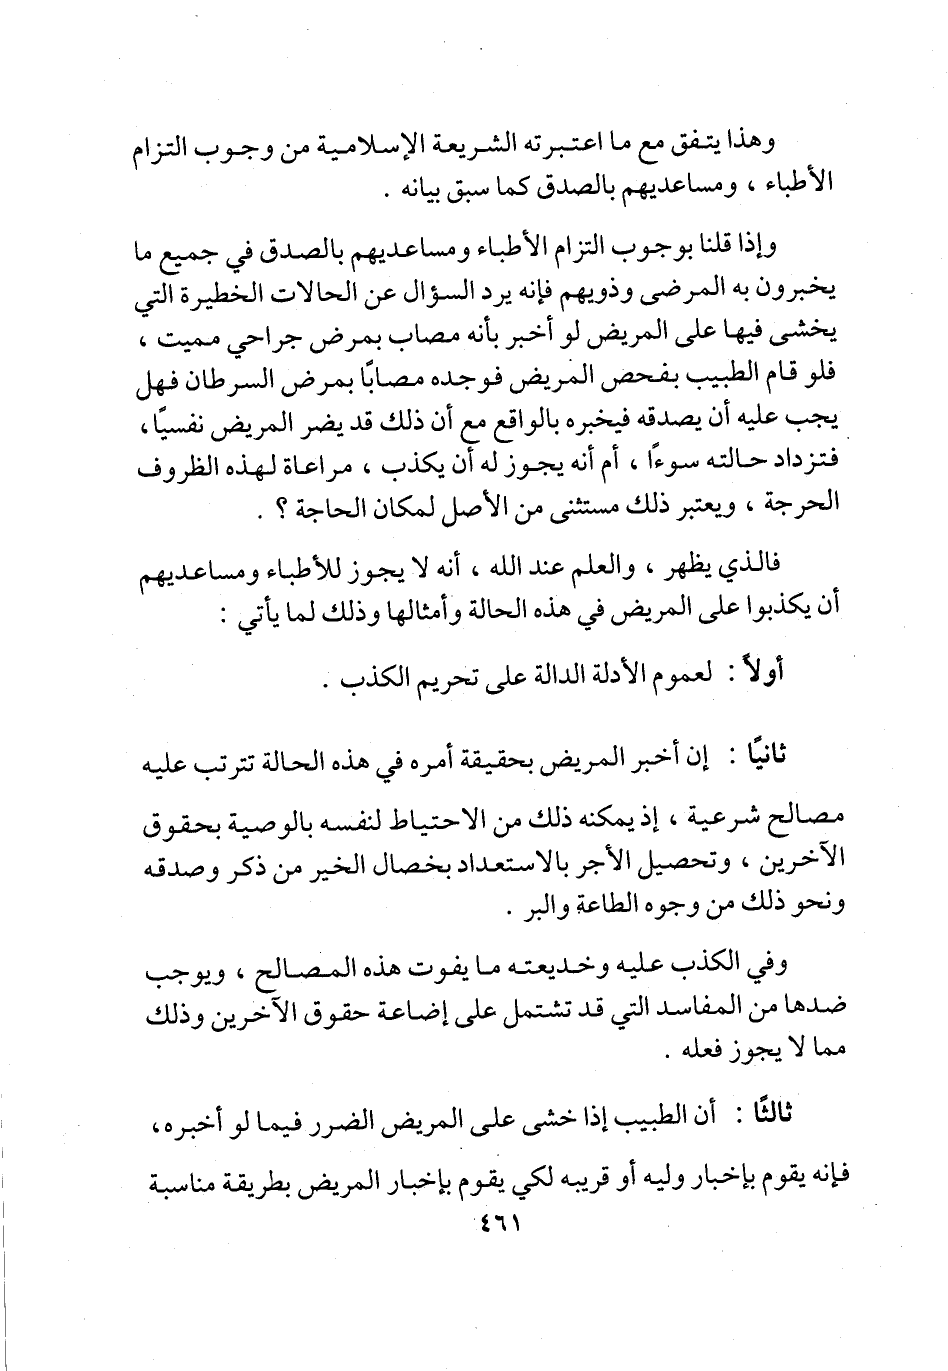 وهذا يتفق مع ما اعتبرته الشريعة الإسلامية من وجوب التزام
الأطباء ، ومساعديهم بالصدق كما سبق بيانه .
وإذا قلنا بوجوب التزام الأطباء ومساعديهم بالصدق في جميع ما
يخبرون به المرضى وذويهم فإنه يرد السؤال عن الحالات الخطيرة التي
يخشى فيها على المريض لو أخبر بأنه مصاب بمرض جراحي مميت ،
فلو قام الطبيب بفحص المريض فوجده مصابًا بمرض السرطان فهل
يجب عليه أن يصدقه فيخبره بالواقع مع أن ذلك قد يضر المريض نفسيًا،
فتزداد حالته سوءًا ، أم أنه يجوز له أن يكذب ، مراعاة لهذه الظروف
الحرجة ، ويعتبر ذلك مستثنى من الأصل لمكان الحاجة ؟ .
فالذي يظهر ، والعلم عند الله ، أنه لا يجوز للأطباء ومساعديهم
أن يكذبوا على المريض في هذه الحالة وأمثالها وذلك لما يأتي :
أولاً : لعموم الأدلة الدالة على تحريم الكذب .
ثانيًا : إن أخبر المريض بحقيقة أمره في هذه الحالة تترتب عليه
مصالح شرعية ، إذ يمكنه ذلك من الاحتياط لنفسه بالوصية بحقوق
الآخرين ، وتحصيل الأجر بالاستعداد بخصال الخير من ذكر وصدقه
ونحو ذلك من وجوه الطاعة والبر .
وفي الكذب عليه وخديعته ما يفوت هذه المصالح ، ويوجب
ضدها من المفاسد التي قد تشتمل على إضاعة حقوق الآخرين وذلك
مما لا يجوز فعله .
ثالثًا : أن الطبيب إذا خشى على المريض الضرر فيما لو أخبره،
فإنه يقوم بإخبار وليه أو قريبه لكي يقوم بإخبار المريض بطريقة مناسبة
٤٦١